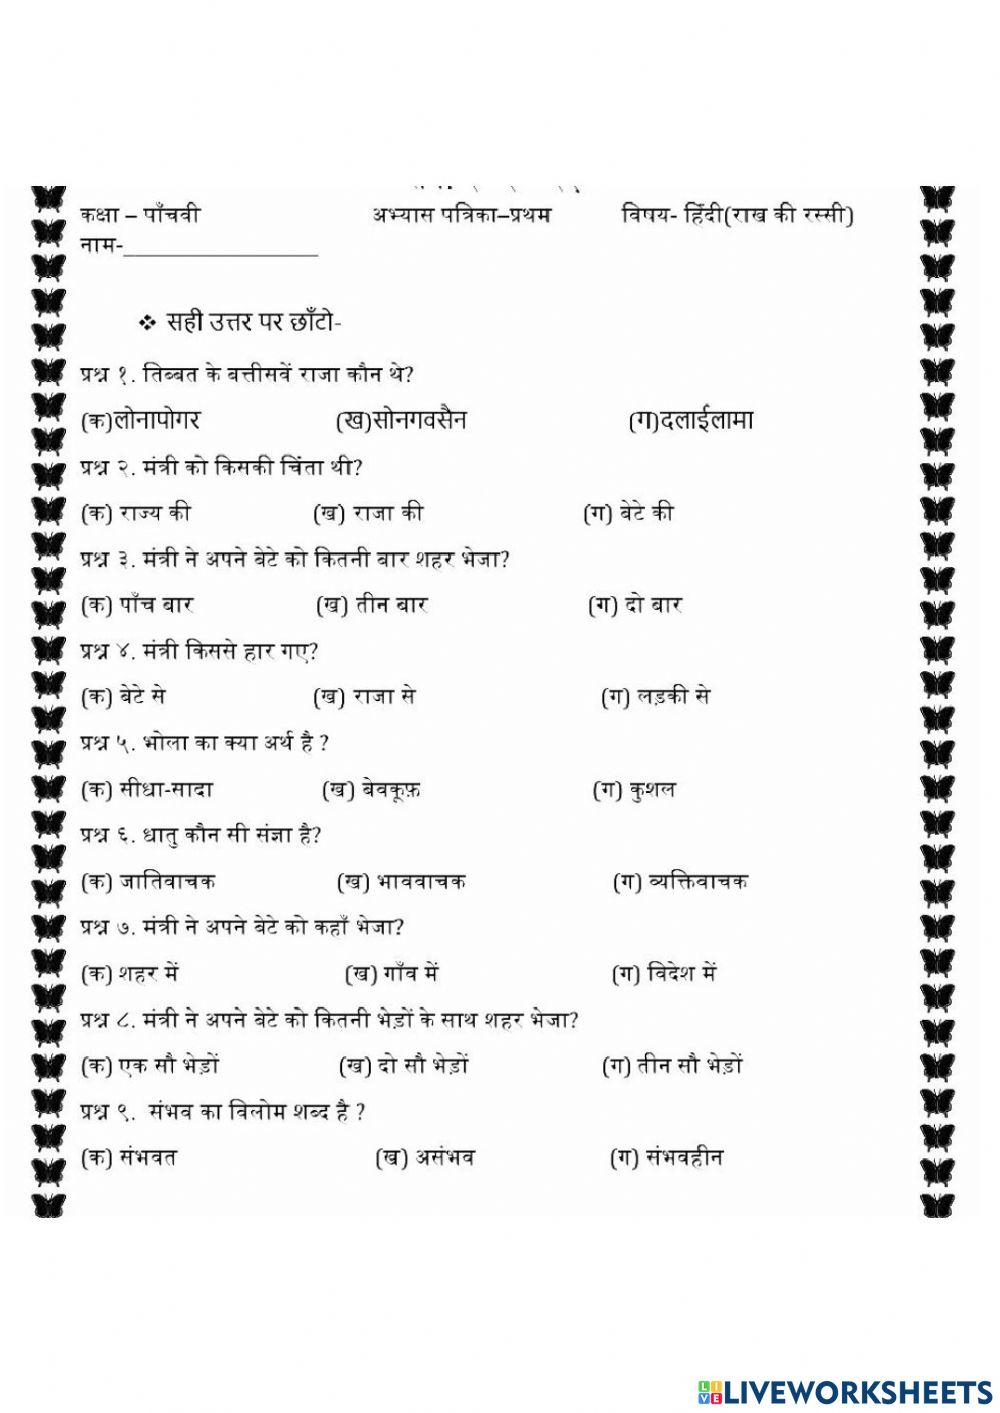 कक्षा – पाँचवी अभ्यास पत्रिका–प्रथम विषय- हिंदी(राख की रस्सी)
नाम-__________________
❖ सही उत्तर पर छाँटो-
प्रश्न १. तिब्बत के बत्तीसवें राजा कौन थे?
(क)लोनापोगर (ख)सोनगवसैन (ग)दलाईलामा
प्रश्न २. मंत्री को किसकी चिंता थी?
(क) राज्य की (ख) राजा की (ग) बेटे की
प्रश्न ३. मंत्री ने अपने बेटे को कितनी बार शहर भेजा?
(क) पाँच बार (ख) तीन बार (ग) दो बार
प्रश्न ४. मंत्री किससे हार गए?
(क) बेटे से (ख) राजा से (ग) लड़की से
प्रश्न ५. भोला का क्या अर्थ है ?
(क) सीधा-सादा (ख) बेवकूफ़ (ग) कुशल
प्रश्न ६. धातु कौन सी संज्ञा है?
(क) जातिवाचक (ख) भाववाचक (ग) व्यक्तिवाचक
प्रश्न ७. मंत्री ने अपने बेटे को कहाँ भेजा?
(क) शहर में (ख) गाँव में (ग) विदेश में
प्रश्न ८. मंत्री ने अपने बेटे को कितनी भेड़ों के साथ शहर भेजा?
(क) एक सौ भेड़ों (ख) दो सौ भेड़ों (ग) तीन सौ भेड़ों
प्रश्न ९. संभव का विलोम शब्द है ?
(क) संभवत (ख) असंभव (ग) संभवहीन
LIVE LIVEWORKSHEETS